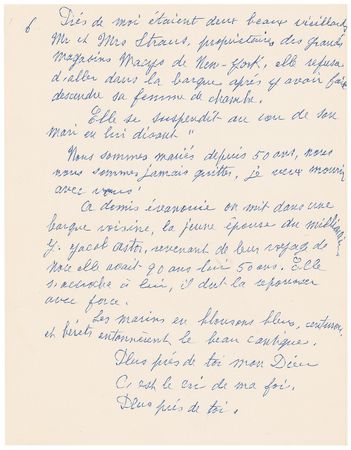 6
Près de moi étaient deux beaux vieillards
Mr et Mrs Straus, propriétaires des grands
magasins Macys de New-York, elle refusa
d'aller dans la barque après y avoir fait
descendre sa femme de chambre.
Elle se suspendit au cou de son
mari en lui disant "
Nous sommes mariés depuis 50 ans, nous
nous sommes jamais quittés, je veux mourir
avec vous!
A demis évanouie on mit dans une
barque voisine, la jeune épouse du milliardaire
J. Jacob Astor, revenant de leur voyage de
noce elle avait 20 ans lui 50 ans. Elle
s'accroche à lui, il dut la repousser
avec force.
Les marins en blouson bleu, ceinturon,
et bérets entonnèrent le beau cantique.
Plus près de toi mon Dieu
C'est le cri de ma foi.
Plus près de toi.